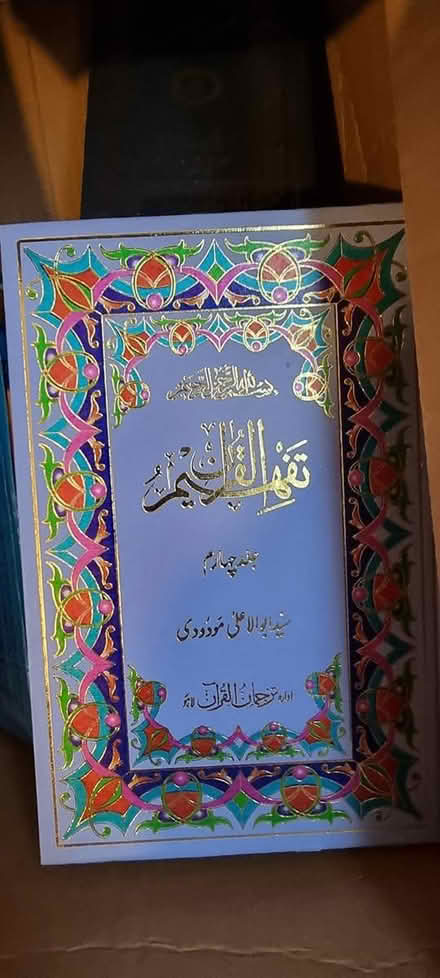 بسم الله الرحمن الرحيم
تفہیم القرآن
جلد چہارم
سید ابوالاعلیٰ مودودی
ادارہ ترجمان القرآن لاہور